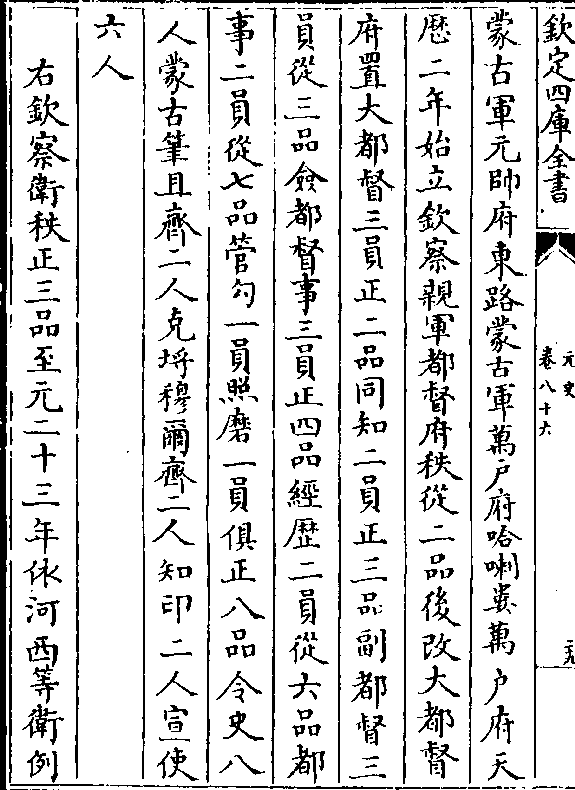 欽定四庫全書
元史
卷八十六
蒙古軍元帥府東路蒙古軍萬戶府哈喇婁萬戶府天
厯二年始立欽察親軍都督府秩從二品後改大都督
府置大都督三員正二品同知二員正三品副都督三
員從三品僉都督事三員正四品經歴二員從六品都
事二員從七品管勾一員照磨一員俱正八品令史八
人蒙古筆且齊二人克埒穆爾齊二人知印二人宣使
六人
右欽察衛秩正三品至元二十三年依河西等衛例